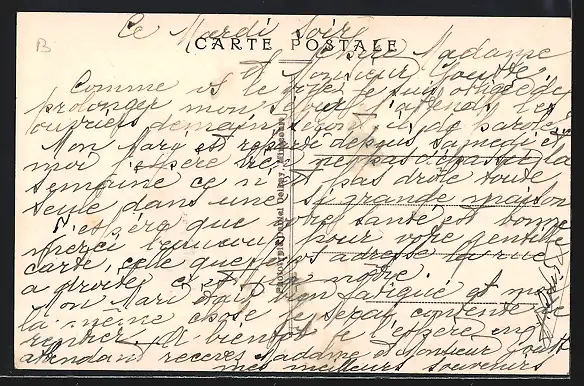 Ce Mardi Soir
CARTE POSTALE
Chère Madame
et Monsieur
Comme vs le voyez je suis obligée de
prolonger mon séjour j'attends les
ouvriers demain seront ils de parole
Mon Mary est reparti depuis samedi et
moi j'espère ne pas dépasser la
semaine ce n'est pas drôle toute
seule dans une si grande maison
J'espère que votre santé est bonne
merci beaucoup pour votre gentille
carte, celle que adresse la rue
a droite c'est la notre.
Mon Mari était bien fatigué et moi
la même chose je serai contente de
rentrer. A bientôt je l'espère en
attendant recevez Madame et Monsieur
mes meilleurs souvenirs